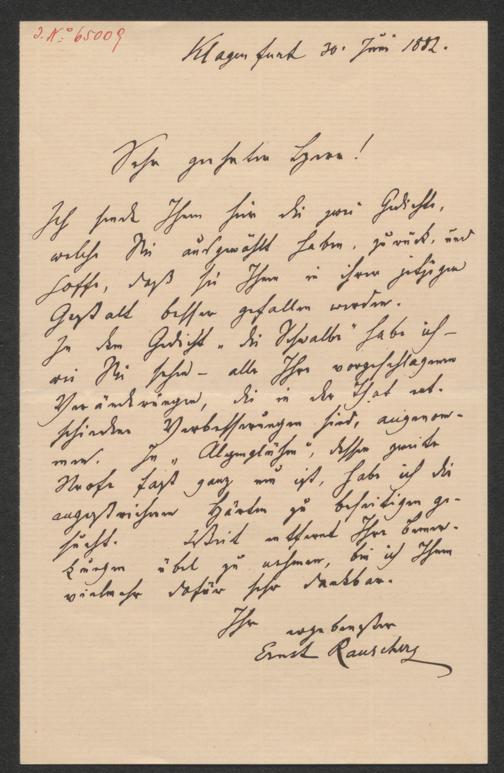 J. N.º 65009
Klagenfurt 30. Juni 1882.
Sehr geehrter Herr!
Ich sende Ihnen hier die zwei Gedichte,
welche Sie ausgewählt haben, zurück, und
hoffe, daß sie Ihnen in ihrer jetzigen
Gestalt besser gefallen werden.
In dem Gedicht „die Schwalbe" habe ich –
wie Sie sehen – alle Ihre vorgeschlagenen
Veränderungen, die in der That ent-
schieden Verbesserungen sind, angenom-
men. In „Alpenglühen", dessen zweite
Strofe fast ganz neu ist, habe ich die
angestrichenen Härten zu beseitigen ge-
sucht. Weit entfernt Ihre Bemer-
kungen übel zu nehmen, bin ich Ihnen
vielmehr dafür sehr dankbar.
Ihr ergebenster
Ernst Rauscher